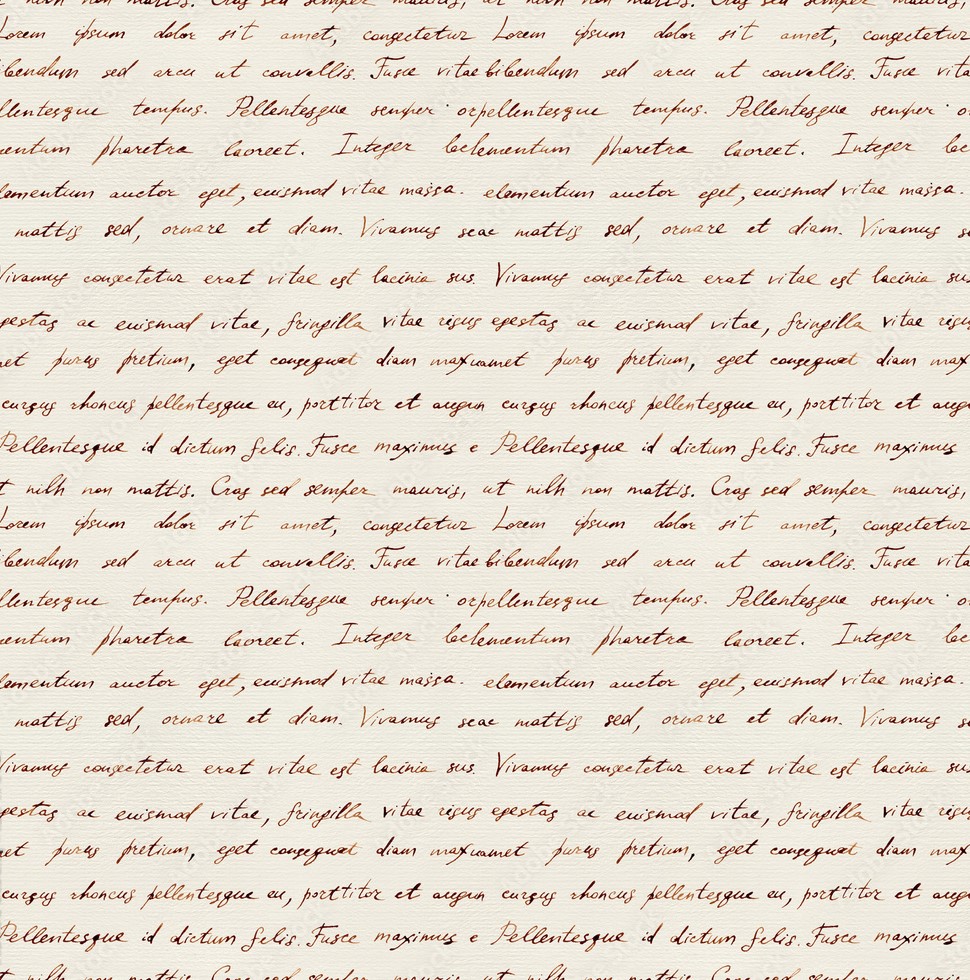 nibh non mattis. Cras sed semper mauris, ut nibh non mattis. Cras sed semper mauris,
Lorem ipsum dolor sit amet, congectetur Lorem ipsum dolor sit amet, congectetur
ibendum sed arcu ut convallis. Fusce vitae bibendum sed arcu ut convallis. Fusce vita
llentesque tempus. Pellentesque semper orpellentesque tempus. Pellentesque semper o
entum pharetra laoreet. Integer belementum pharetra laoreet. Integer be
lementum auctor eget, euismod vitae massa. elementum auctor eget, euismod vitae massa.
mattis sed, ornare et diam. Vivamus seac mattis sed, ornare et diam. Vivamus s
Vivamus congectetur erat vitae est lacinia sus. Vivamus congectetur erat vitae est lacinia su
gestas ac euismod vitae, fringilla vitae risus egestas ac euismod vitae, fringilla vitae risu
et purus pretium, eget consequat diam maxuamet purus pretium, eget consequat diam max
cursus rhoncus pellentesque eu, porttitor et augun cursus rhoncus pellentesque eu, porttitor et aug
Pellentesque id dictum felis. Fusce maximus e Pellentesque id dictum felis. Fusce maximus
t nibh non mattis. Cras sed semper mauris, ut nibh non mattis. Cras sed semper mauris,
Lorem ipsum dolor sit amet, congectetur Lorem ipsum dolor sit amet, congectetur
ibendum sed arcu ut convallis. Fusce vitae bibendum sed arcu ut convallis. Fusce vita
llentesque tempus. Pellentesque semper orpellentesque tempus. Pellentesque semper o
entum pharetra laoreet. Integer belementum pharetra laoreet. Integer be
lementum auctor eget, euismod vitae massa. elementum auctor eget, euismod vitae massa.
mattis sed, ornare et diam. Vivamus seac mattis sed, ornare et diam. Vivamus s
Vivamus congectetur erat vitae est lacinia sus. Vivamus congectetur erat vitae est lacinia su
gestas ac euismod vitae, fringilla vitae risus egestas ac euismod vitae, fringilla vitae risu
et purus pretium, eget consequat diam maxuamet purus pretium, eget consequat diam max
cursus rhoncus pellentesque eu, porttitor et augun cursus rhoncus pellentesque eu, porttitor et aug
Pellentesque id dictum felis. Fusce maximus e Pellentesque id dictum felis. Fusce maximus